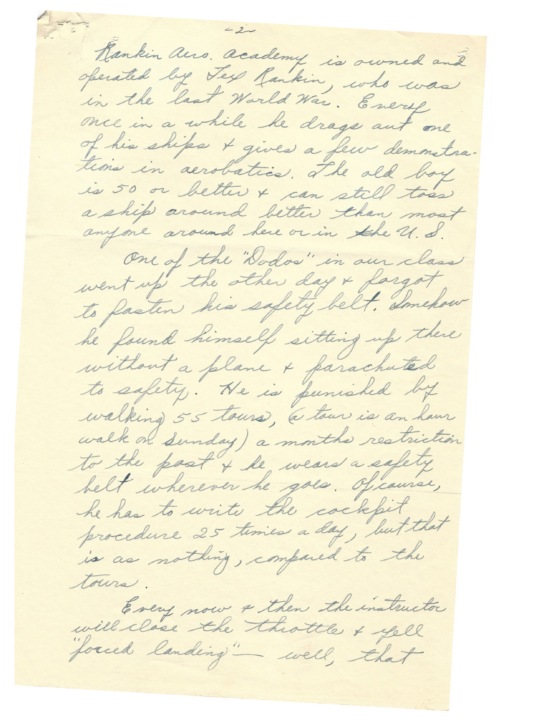 -2-
Rankin Aero. Academy is owned and
operated by Tex Rankin, who was
in the last World War. Every
once in a while he drags out one
of his ships & gives a few demonstra-
tions in aerobatics. The old boy
is 50 or better & can still toss
a ship around better than most
anyone around here or in the U.S.
One of the "Dodos" in our class
went up the other day & forgot
to fasten his safety belt. Somehow
he found himself sitting up there
without a plane & parachuted
to safety. He is punished by
walking 55 tours, (a tour is an hour
walk on Sunday) a months restriction
to the post & he wears a safety
belt wherever he goes. Of course,
he has to write the cockpit
procedure 25 times a day, but that
is as nothing, compared to the
tours.
Every now & then the instructor
will close the throttle & yell
"forced landing" — well, that